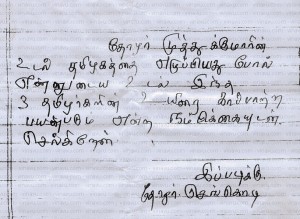 தோழர் முத்துக்குமாரின்
உடல் தமிழகத்தை எழுப்பியது போல்
என்னுடைய உடல் இந்த
3 தமிழர்களின் உயிரை காப்பாற்ற
பயன்படும் என்ற நம்பிக்கையுடன்
செல்கிறேன்
இப்படிக்கு
தோழர் செங்கொடி